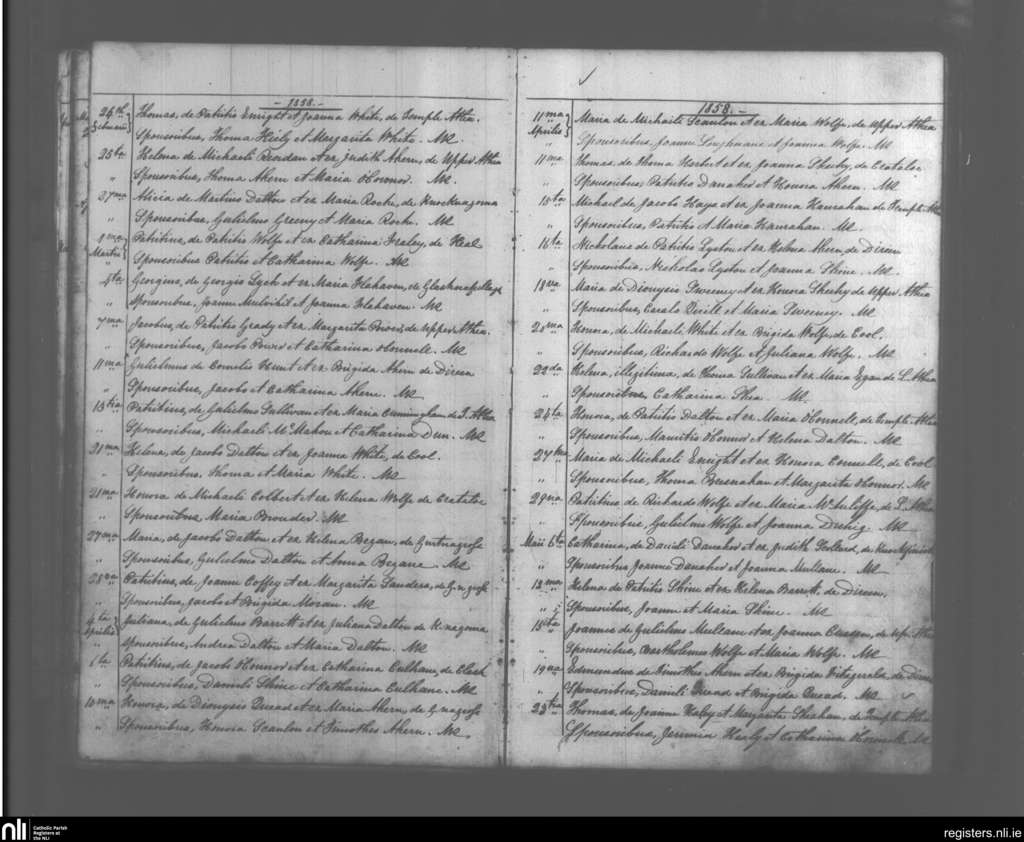 - 1858. -
24th Thomas, de Patritio Enright et Joanna White, de Temple Athea.
Sponsoribus, Thoma Kiely et Margarita White. M
25ta Helena de Michaeli Riordan et ex Judith Ahern, de Upper Athea
" Sponsoribus, Thoma Ahern et Maria OConnor. M
27ma Alicia de Martino Dalton et ex Maria Roche, de Knocknagorna
" Sponsoribus, Gulielmo Greeny et Maria Roche. M
Martii Patritius, de Patritio Wolfe et ex Catharina Fealey, de Keal
" Sponsoribus Patritio et Catharina Wolfe. M
4ta Georgius, de Georgio Lynch et ex Maria Flahaven, de
" Sponsoribus, Joanne Mulvihil et Joanna Flahaven. M
7ma Jacobus, de Patritio Grady et ex Margarita Power, de Upper Athea.
" Sponsoribus, Jacobo Power et Catharina OConnell. M
11ma Gulielmus de Cornelio Hunt et ex Brigida Ahern de Direen
" Sponsoribus, Jacobo et Catharina Ahern. M
13tia Patritius, de Gulielmo Sullivan et ex Maria Cuningham de T. Athea
" Sponsoribus, Michaeli McMahon et Catharina Dun. M
21ma Helena, de Jacobo Dalton et ex Joanna White, de Cool.
" Sponsoribus, Thoma et Maria White. M
21ma Honora de Michaeli Colbert et ex Helena Wolfe de Cratela
" Sponsoribus, Maria Browder. M
27ma Maria, de Jacobo Dalton et ex Helena Begane, de Gurtnagrosse
" Sponsoribus, Gulielmo Dalton et Anna Begane. M
28va Patritius, de Joanne Coffey et ex Margarita Sanders, de G.nagross
" Sponsoribus, Jacobo et Brigida Moran. M
4ta Aprilis Juliana, de Gulielmo Barrett et ex Juliana Dalton de K.nagorna
" Sponsoribus, Andrea Dalton et Maria Dalton. M
6ta Patritius, de Jacobo OConnor et ex Catharina Culhane, de Clash
" Sponsoribus, Danieli Shine et Catharina Culhane. M
10ma Honora, de Dionysio Quead et ex Maria Ahern, de G.nagrosse
" Sponsoribus, Honora Scanlon et Timotheo Ahern. M
1858. -
11ma Aprilis Maria de Michaele Scanlon et ex Maria Wolfe, de Upper Athea
" Sponsoribus Joanne et Joanna Wolfe. M
11ma Thomas, de Thoma Herbert et ex Joanna Sheehy, de Cratela
" Sponsoribus, Patritio Danaher et Honora Ahern. M
15ta Michael de Jacobo Hayes et ex Joanna Hanrahan de Temple Athea
" Sponsoribus, Patritio et Maria Hanrahan. M
16ta Nicholaus de Patritio Lyston et ex Helena Ahern, de Direen
" Sponsoribus, Nicholao Lyston et Joanna Shine. M
18va Maria de Dionysio Sweeney et ex Honora Sheehy de Upper Athea
" Sponsoribus, Carolo Quille et Maria Sweeney. M
20ma Honora, de Michaele White et ex Brigida Wolfe, de Cool.
" Sponsoribus, Richardo Wolfe et Juliana Wolfe. M
22da Helena, illegitima, de Thoma Sullivan et ex Maria Egan de L. Athea
" Sponsoribus, Catharina Shea. M
24ta Honora, de Patritio Dalton et ex Maria OConnell, de Temple Athea
" Sponsoribus, Mauritio OConnor et Helena Dalton. M
27ma Maria de Michaeli Enright et ex Honora Connell, de Cool
" Sponsoribus, Thoma Bresnahan et Margarita OConnor. M
29na Patritius de Richardo Wolfe et ex Maria McAuliffe, de L. Athea
" Sponsoribus, Gulielmo Wolfe et Joanna M
Maii 6ta Catharina, de Danieli Danaher et ex Judith Pollard, de Knockfinisk
" Sponsoribus Joanne Danaher et Joanna Mullane. M
12ma Helena de Patritio Shine et ex Helena Barrett, de Direen.
" Sponsoribus, Joanne et Maria Shine. M
15ta Joannes de Gulielmo Mullane et ex Joanna de Up. Athea
" Sponsoribus, Bartholomeo Wolfe et Maria Wolfe. M
19na Edmundus de Timotheo Ahern et ex Brigida Fitzgerald, de Direen
" Sponsoribus, Danieli Quead et Brigida Quead. M
23tia Thomas, de Joanne Kaley et Margarita Sheahan, de Temple Athea
Sponsoribus, Jeremia Healy et Catharina OConnell. M
nli Catholic Parish
Registers at
the NLI
registers.nli.ie